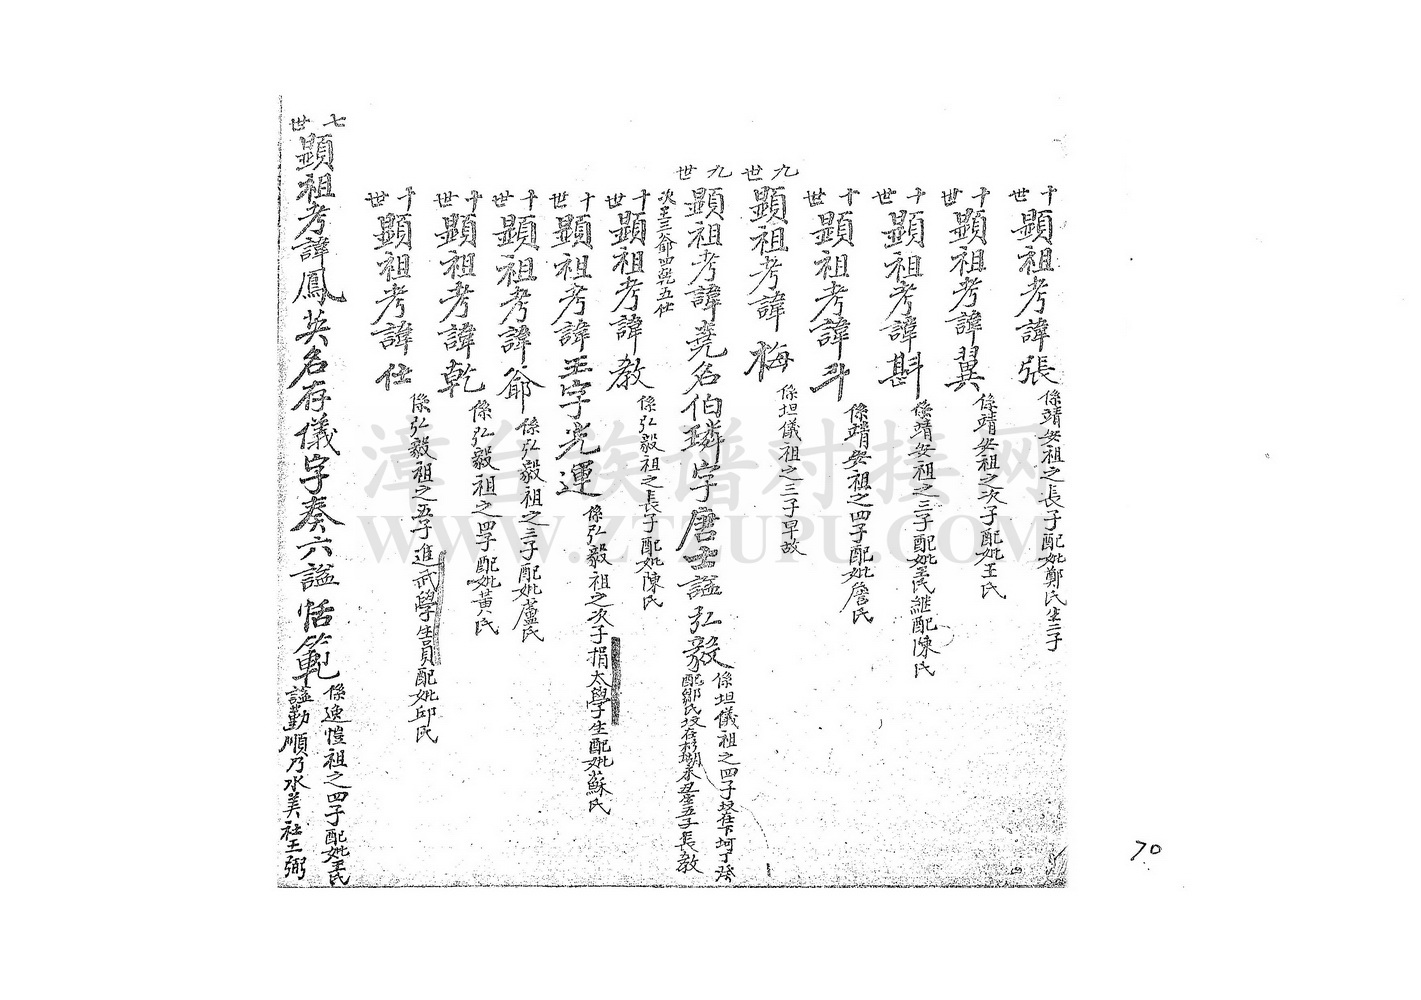 十世 顯祖考諱張 係靖安祖之長子配妣鄭氏生二子
十世 顯祖考諱翼 係靖安祖之次子配妣王氏
十世 顯祖考諱斟 係靖安祖之三子配妣王氏繼配陳氏
十世 顯祖考諱斗 係靖安祖之四子配妣詹氏
九世 顯祖考諱梅 係坦儀祖之三子早故
九世 顯祖考諱堯名伯璘字唐士謚弘毅 係坦儀祖之四子坟在下坷丁癸
配鄒氏坟在杉坳未丑生五子長教
次王三爺四乾五仕
十世 顯祖考諱教 係弘毅祖之長子配妣陳氏
十世 顯祖考諱王字光運 係弘毅祖之次子捐太學生配妣蘇氏
十世 顯祖考諱爺 係弘毅祖之三子配妣蘆氏
十世 顯祖考諱乾 係弘毅祖之四子配妣黃氏
十世 顯祖考諱仕 係弘毅祖之五子進武學生員配妣邱氏
七世 顯祖考諱鳳英名存儀字奏六謚恬範 係逸愷祖之四子配妣王氏
謚勤順乃水美社王弼
漳台族谱对接网
WWW.ZTZUPU.COM
70